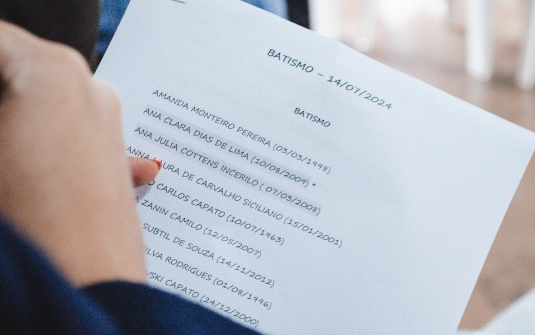 BATISMO – 14/07/2024
BATISMO
AMANDA MONTEIRO PEREIRA (03/03/1998)
ANA CLARA DIAS DE LIMA (10/08/2009) *
ANA JULIA COTTENS INCERILO ( 07/03/2008)
ANNA LAURA DE CARVALHO SICILIANO (15/01/2001)
CARLOS CAPATO (10/07/1963)
ZANIN CAMILO (12/05/2007)
SUBTIL DE SOUZA (14/11/2012)
SILVA RODRIGUES (01/08/1996)
CAPATO (24/12/2000)